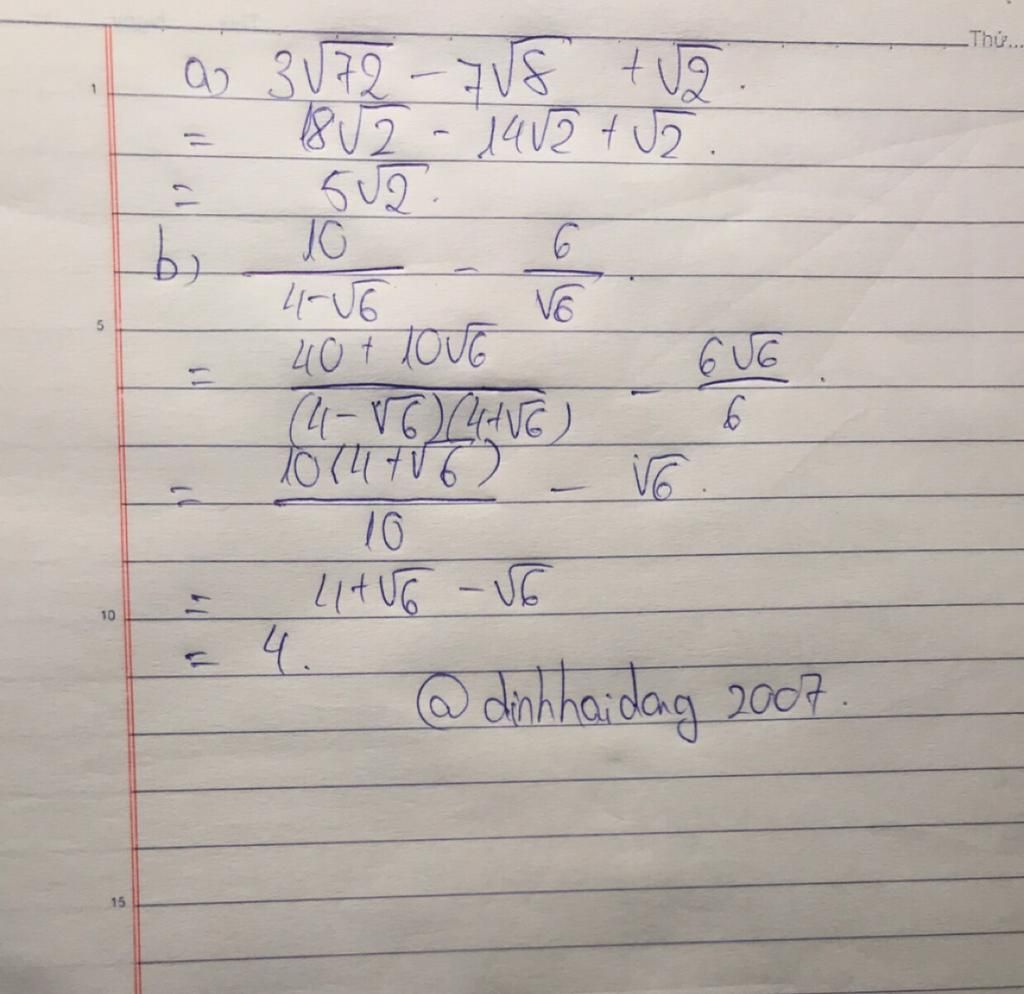 Thứ...
a) 3√72 - 7√8 + √2.
1
= 18√2 - 14√2 + √2.
= 5√2.
b) 10/(4-√6) - 6/√6.
5
= (40 + 10√6)/((4-√6)(4+√6)) - 6√6/6.
= 10(4+√6)/10 - √6.
= 4+√6 - √6
10
= 4.
@dinhhaidang 2007.
15